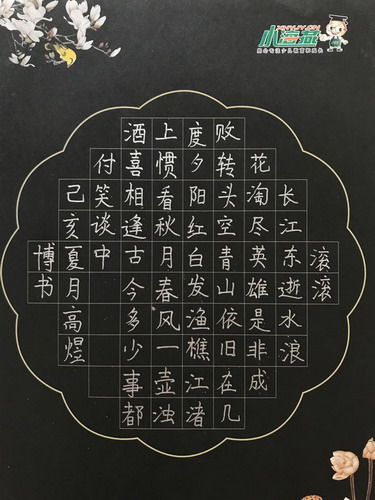 小海燕
滚滚
长江东逝水浪
花淘尽英雄是非成
败转头空青山依旧在几
度夕阳红白发渔樵江渚
上惯看秋月春风一壶浊
酒喜相逢古今多少事都
付笑谈中
己亥夏月高煜
博书